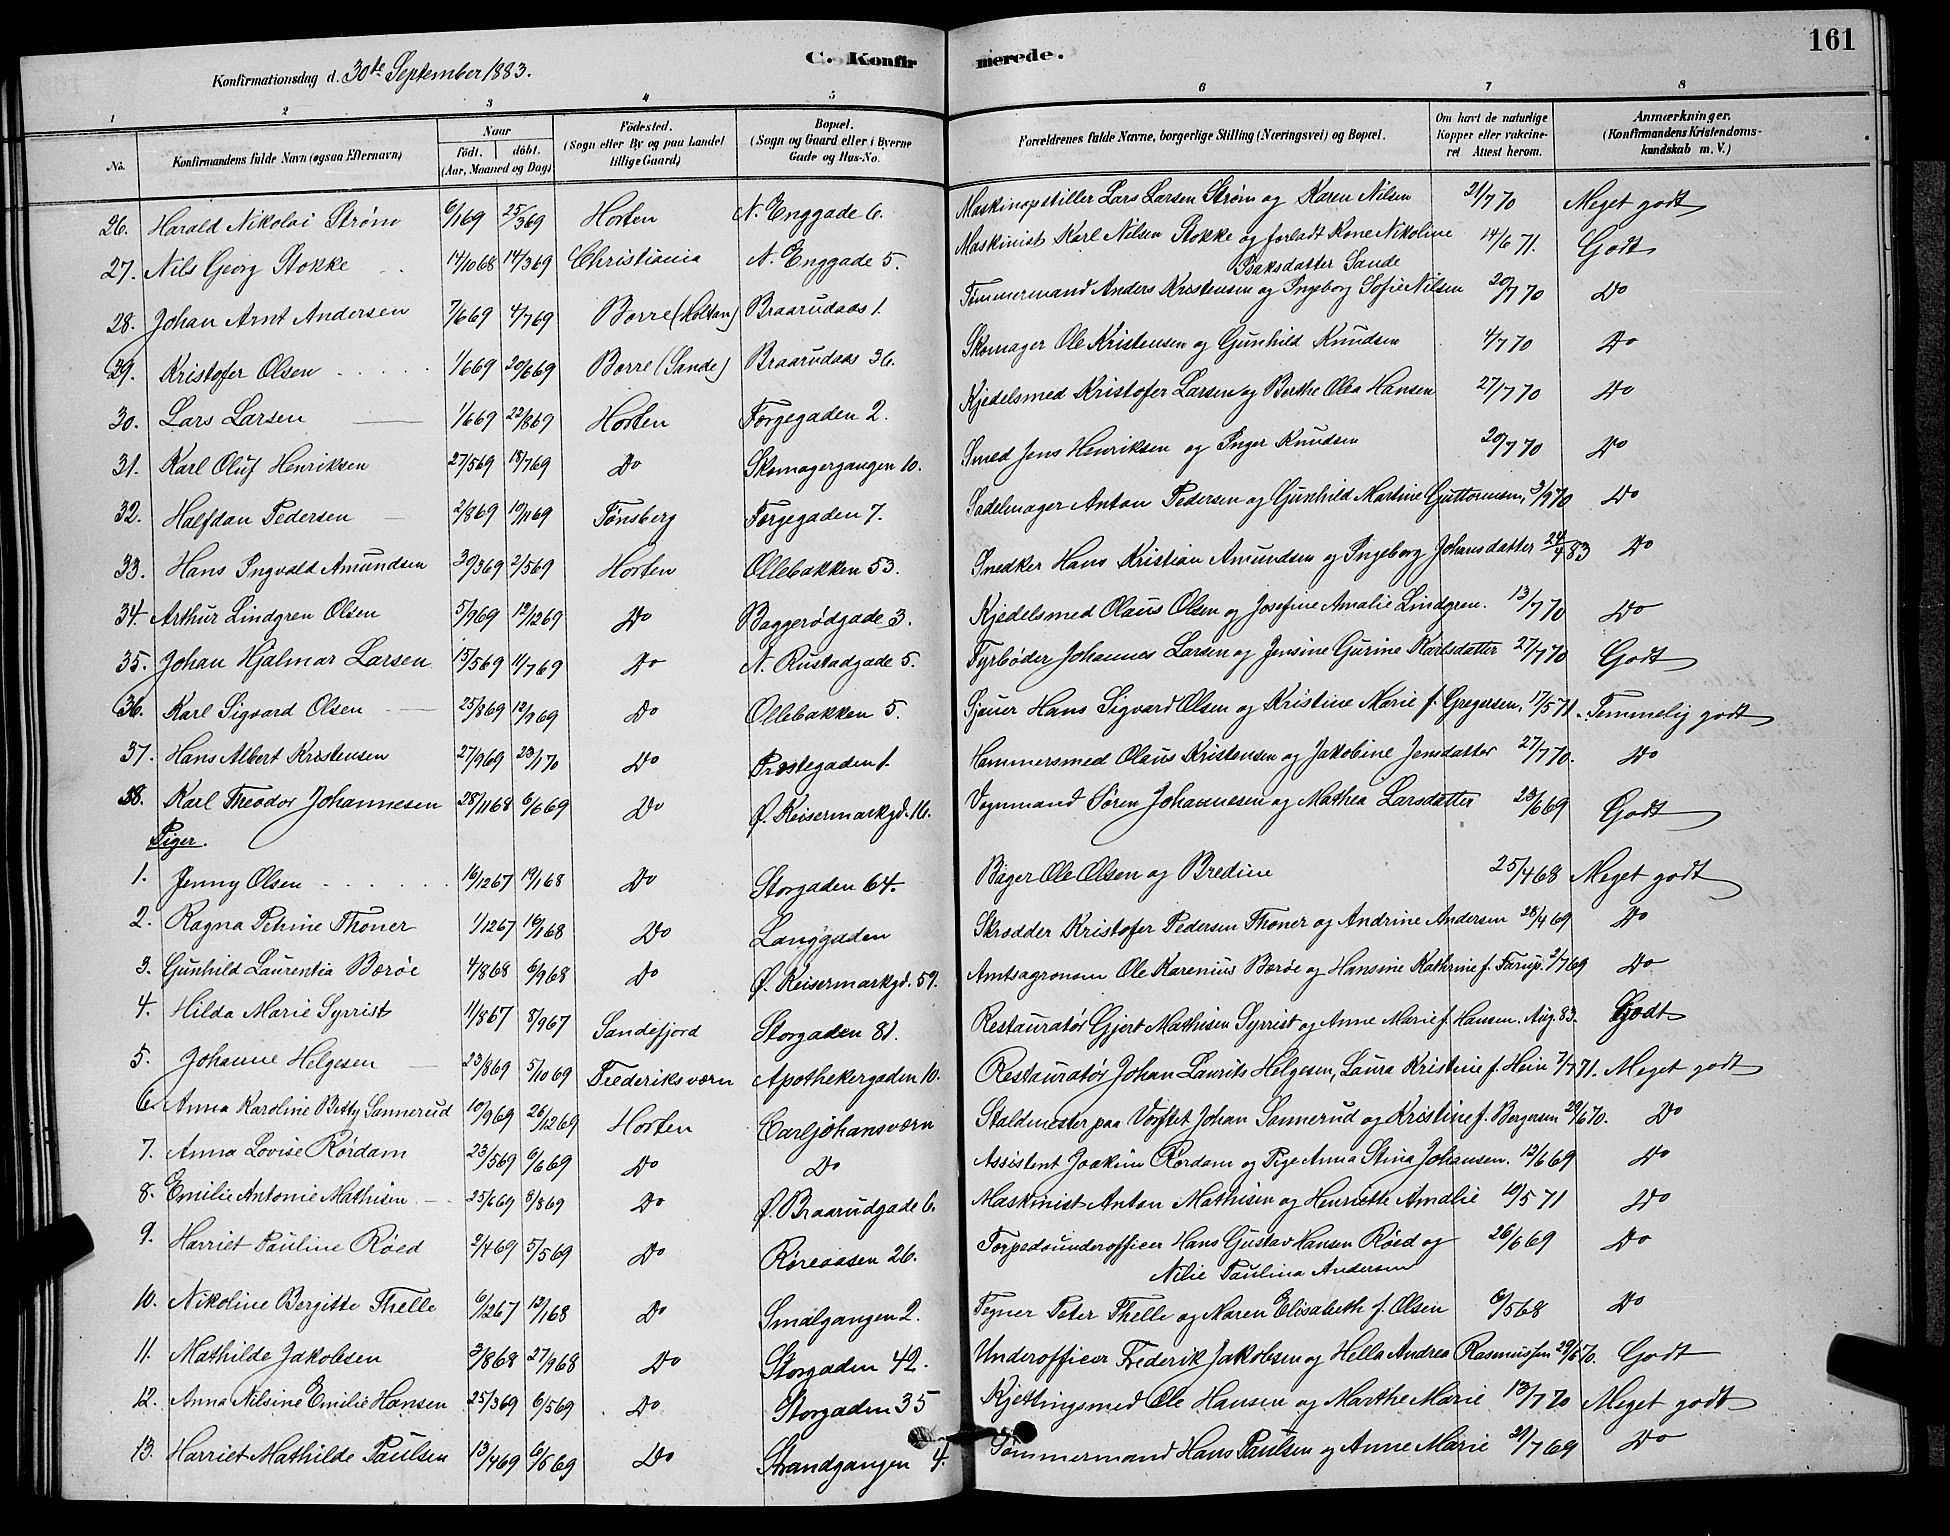 161
C. Konfirmerede.
Konfirmationsdag d. 30te September 1883.
1 2 3 4 5 6 7 8
No. Konfirmandens fulde Navn (ogsaa Efternavn) Naar födt. döbt. (Aar, Maaned og Dag) Födested. (Sogn eller By og paa Landet tillige Gaard) Bopæl. (Sogn og Gaard eller i Byerne Gade og Hus-No. Forældrenes fulde Navne, borgerlige Stilling (Næringsvei) og Bopæl. Om havt de naturlige Kopper eller vakcineret Attest herom. Anmærkninger. (Konfirmandens Kristendomskundskab m. V.)
26. Harald Nikolai Strøm 6/1 69 25/3 69 Horten N. Enggade 6. Maskinopstiller Lars Larsen Strøm og Karen Nilsen 21/7 70 Meget godt
27. Nils Georg Stokke 14/10 68 14/3 69 Christiania N. Enggade 5. Maskinist Karl Nilsen Stokke og forladt Kone Nikoline 14/6 71. Godt
Isaksdatter Sande
28. Johan Arnt Andersen 7/6 69 4/7 69 Borre (Holtan) Braarudaas 1. Tømmermand Anders Kristensen og Ingeborg Sofie Nilsen 20/7 70 Do
29. Kristofer Olsen 1/6 69 20/6 69 Borre (Sande) Braarudaas 36. Skomager Ole Kristensen og Gunhild Knudsen 4/7 70 Do
30. Lars Larsen 1/6 69 22/8 69 Horten Torgegaden 2. Kjedelsmed Kristofer Larsen og Berthe Olea Hansen 27/7 70 Do
31. Karl Oluf Henriksen 27/5 69 18/7 69 Do Skomagergangen 10. Smed Jens Henriksen og Inger Knudsen 20/7 70 Do
32. Halfdan Pedersen 2/8 69 19/11 69 Tønsberg Torgegaden 7. Sadelmager Anton Pedersen og Gunhild Martine Guttormsen, 2/9 70 Do
33. Hans Ingvald Amundsen 30/3 69 2/5 69 Horten Ollebakken 53. Snedker Hans Kristian Amundsen og Ingeborg Johansdatter 24/4 83 Do
34. Arthur Lindgren Olsen 5/9 69 12/12 69 Do Baggerødgade 3. Kjedelsmed Olaus Olsen og Josefine Amalie Lindgren. 13/7 70 Do
35. Johan Hjalmar Larsen 15/5 69 11/7 69 Do N. Rustadgade 5. Fyrbøder Johannes Larsen og Jensine Gurine Karlsdatter 27/7 70 Godt
36. Karl Sigvard Olsen 25/8 69 12/9 69 Do Ollebakken 5. Sjauer Hans Sigvard Olsen og Kristine Marie f. Gregersen, 17/5 71. Temmelig godt
37. Hans Albert Kristensen 27/9 69 23/1 70 Do Prestegaden 1. Hammersmed Olaus Kristensen og Jakobine Jensdatter 27/7 70. Do
38. Karl Theodor Johannesen 28/11 68 6/6 69 Do Ø. Keisermarkgd. 16. Vognmand Søren Johannesen og Mathea Larsdatter 23/6 69 Godt
Piger.
1. Jenny Olsen 16/12 67 19/1 68 Do Storgaden 64. Bager Ole Olsen og Bredine 25/4 68 Meget godt
2. Ragna Petrine Thoner 1/12 67 16/1 68 Do Langgaden Skrædder Kristofer Pedersen Thoner og Andrine Andersen 28/4 69 Do
3. Gunhild Laurentia Bærøe 4/8 68 6/9 68 Do Ø. Keisermarkgd. 59. Amtsagronom Ole Karenius Bærøe og Hansine Kathrine f. Farup. 2/7 69 Do
4. Hilda Marie Syrrist 11/8 67 8/9 67 Sandefjord Storgaden 81. Restauratør Gjert Mathisen Syrrist og Anne Marie f. Hansen. Aug. 83. Godt
5. Johanne Helgesen 23/8 69 5/10 69 Frederiksværn Apothekergaden 10. Restauratør Johan Laurits Helgesen, Laura Kristine f. Hein 7/7 71. Meget godt
6. Anna Karoline Betty Sannerud 10/9 69 26/12 69 Horten Carljohansværn Staldmester paa Værftet Johan Sannerud og Kristine f. Bergersen 29/6 70. Do
7. Anna Lovise Rørdam 23/5 69 6/6 69 Do Do Assistent Joakim Rørdam og Pige Anna Stina Johansen. 12/6 69 Do
8. Emilie Antonie Mathisen 25/6 69 8/8 69 Do Ø. Braarudgade 6. Maskinist Anton Mathisen og Henriette Amalie 19/5 71 Do
9. Harriet Pauline Røed 2/4 69 5/5 69 Do Røreaasen 26. Torpedounderofficer Hans Gustav Hansen Røed og 26/6 69 Do
Nilie Paulina Andersen
10. Nikoline Bergitte Thelle 6/12 67 12/1 68 Do Smalgangen 2. Tegner Peter Thelle og Maren Elisabeth f. Olsen 6/5 68 Do
11. Mathilde Jakobsen 3/8 68 27/9 68 Do Storgaden 42. Underofficer Frederik Jakobsen og Hella Andrea Rasmussen 29/6 70. Godt
12. Anna Nilsine Emilie Hansen 25/3 69 6/5 69 Do Storgaden 35 Kjettingsmed Ole Hansen og Marthe Marie 13/7 70 Meget godt
13. Harriet Mathilde Paulsen 13/4 69 6/5 69 Do Strandgangen 4. Tømmermand Hans Paulsen og Anne Marie 21/7 69 Do